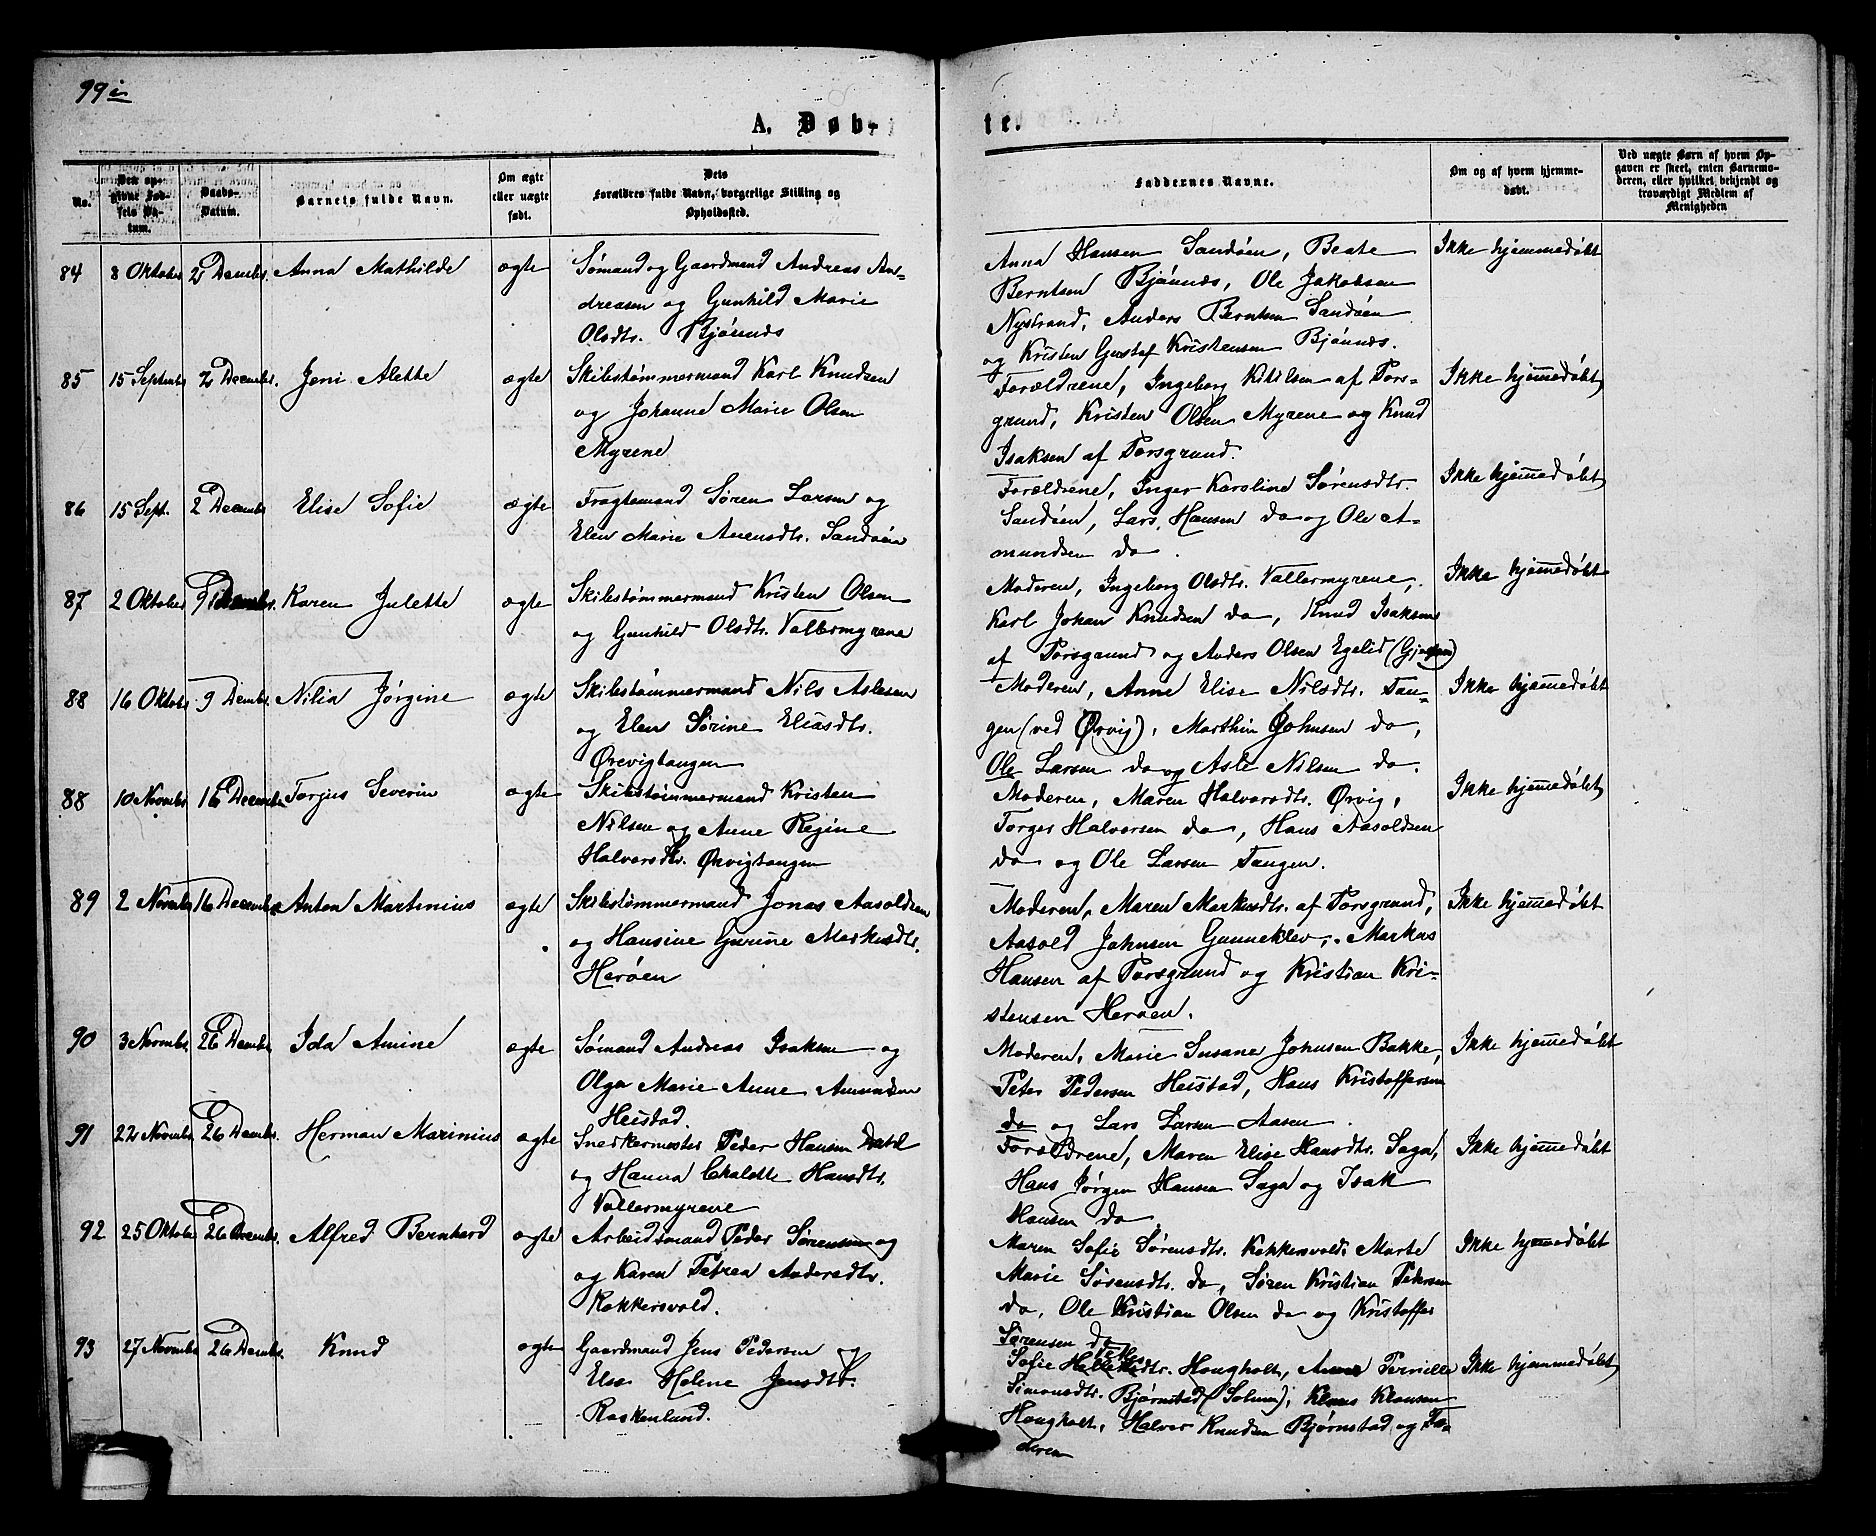 99 i
A. Døb-
te.
No.
Den opgivne Fødsels Datum.
Daabs-Datum.
Barnets fulde Navn.
Om ægte eller uægte født.
Dets Forældres fulde Navn, borgerlige Stilling og Opholdssted.
Faddernes Navne.
Om og af hvem hjemmedøbt.
Ved uægte Børn af hvem Opgaven er skeet, enten Barnemoderen, eller hvilket bekjendt og troværdigt Medlem af Menigheden
84 8 Oktober 2 Decembr. Anna Mathilde ægte Sømand og Gaardmand Andreas An-
dreasen og Gunhild Marie
Olsdtr. Bjønnes
Anna Hansen Sandøen, Beate
Berntsen Bjønnes, Ole Jakobsen
Nystrand, Anders Berntsen Sandøen
og Kristen Gustaf Kristensen Bjønnes.
Ikke hjemmedøbt
85 15 Septembr 2 Decembr. Jeni Alette ægte Skibstømmermand Karl Knudsen
og Johanne Marie Olsen
Myrene
Forældrene, Ingeborg Kittilsen af Pors-
grund, Kristen Olsen Myrene og Knud
Isaksen af Porsgrund.
Ikke hjemmedøbt
86 15 Sept. 2 Decembr Elise Sofie ægte Fragtemand Søren Larsen og
Elen Marie Arensdtr. Sandøen
Forældrene, Inger Karoline Sørensdtr.
Sandøen, Lars Hansen do og Ole A-
mundsen do.
Ikke hjemmedøbt
87 2 Oktober 9 Decembr. Karen Julette ægte Skibstømmermand Kristen Olsen
og Gunhild Olsdtr. Vallermyrene
Moderen, Ingeborg Olsdtr. Vallermyrene,
Karl Johan Knudsen do, Knud Isaksen
af Porsgrund og Anders Olsen Egelid (Gjerpen)
Ikke hjemmedøbt
88 16 Oktobr. 9 Decembr. Nilia Jørgine ægte Skibstømmermand Nils Aslesen
og Elen Sørine Eliasdtr.
Ørevigtangen
Moderen, Anne Elise Nilsdtr. Tan-
gen (ved Ørvig), Marthin Johnsen do,
Ole Larsen do og Asle Nilsen do.
Ikke hjemmedøbt
88 10 Novembr. 16 Decembr. Torjus Severin ægte Skibstømmermand Kristen
Nilsen og Anne Regine
Halvorsdtr. Ørvigtangen
Moderen, Maren Halvorsdtr. Ørvig,
Torger Halvorsen do, Hans Aasoldsen
do og Ole Larsen Tangen.
Ikke hjemmedøbt
89 2 Novembr 16 Decembr. Anton Martinius ægte Skibstømmermand Jonas Aasoldsen
og Hansine Gurine Markusdtr.
Herøen
Moderen, Maren Markusdtr. af Porsgrund,
Aasold Johnsen Gunneklev, Markus
Hansen af Porsgrund og Kristian Kri-
stensen Herøen.
Ikke hjemmedøbt
90 3 Novembr. 26 Decembr. Ida Amine ægte Sømand Andreas Isaksen og
Olga Marie Anne Amundsen
Heistad.
Moderen, Marie Susane Johnsen Bakke,
Peter Pedersen Heistad, Hans Kristoffersen
do og Lars Larsen Aasen.
Ikke hjemmedøbt
91 22 Novembr. 26 Decembr. Herman Marinius ægte Snedkermester Peder Hansen
og Hanna Chalotte Hansdtr.
Vallermyrene
Forældrene, Maren Elise Hansdtr. Saga,
Hans Jørgen Hansen Saga og Isak
Hansen do
Ikke hjemmedøbt
92 25 Oktober 26 Decembr. Alfred Bernhard ægte Arbeidsmand Peder Sørensen og
og Karen Petrea Andersdtr.
Kokkersvold.
Maren Sofie Sørensdtr. Kokkersvold, Marte
Marie Sørensdtr. do, Søren Kristian Pedersen
do, Ole Kristian Olsen do og Kristoffer
Sørensen do
Ikke hjemmedøbt
93 27 Novembr 26 Decembr. Knud ægte Gaardmand Jens Pedersen og
Else Helene Jensdtr.
Raskenlund.
Sofie Hougholt, Anne Pernille
Simonsdtr. Bjørnstad (Solum), Klaus Klausen
Hougholt, Halvor Knudsen Bjørnstad og Fa-
deren
Ikke hjemmedøbt